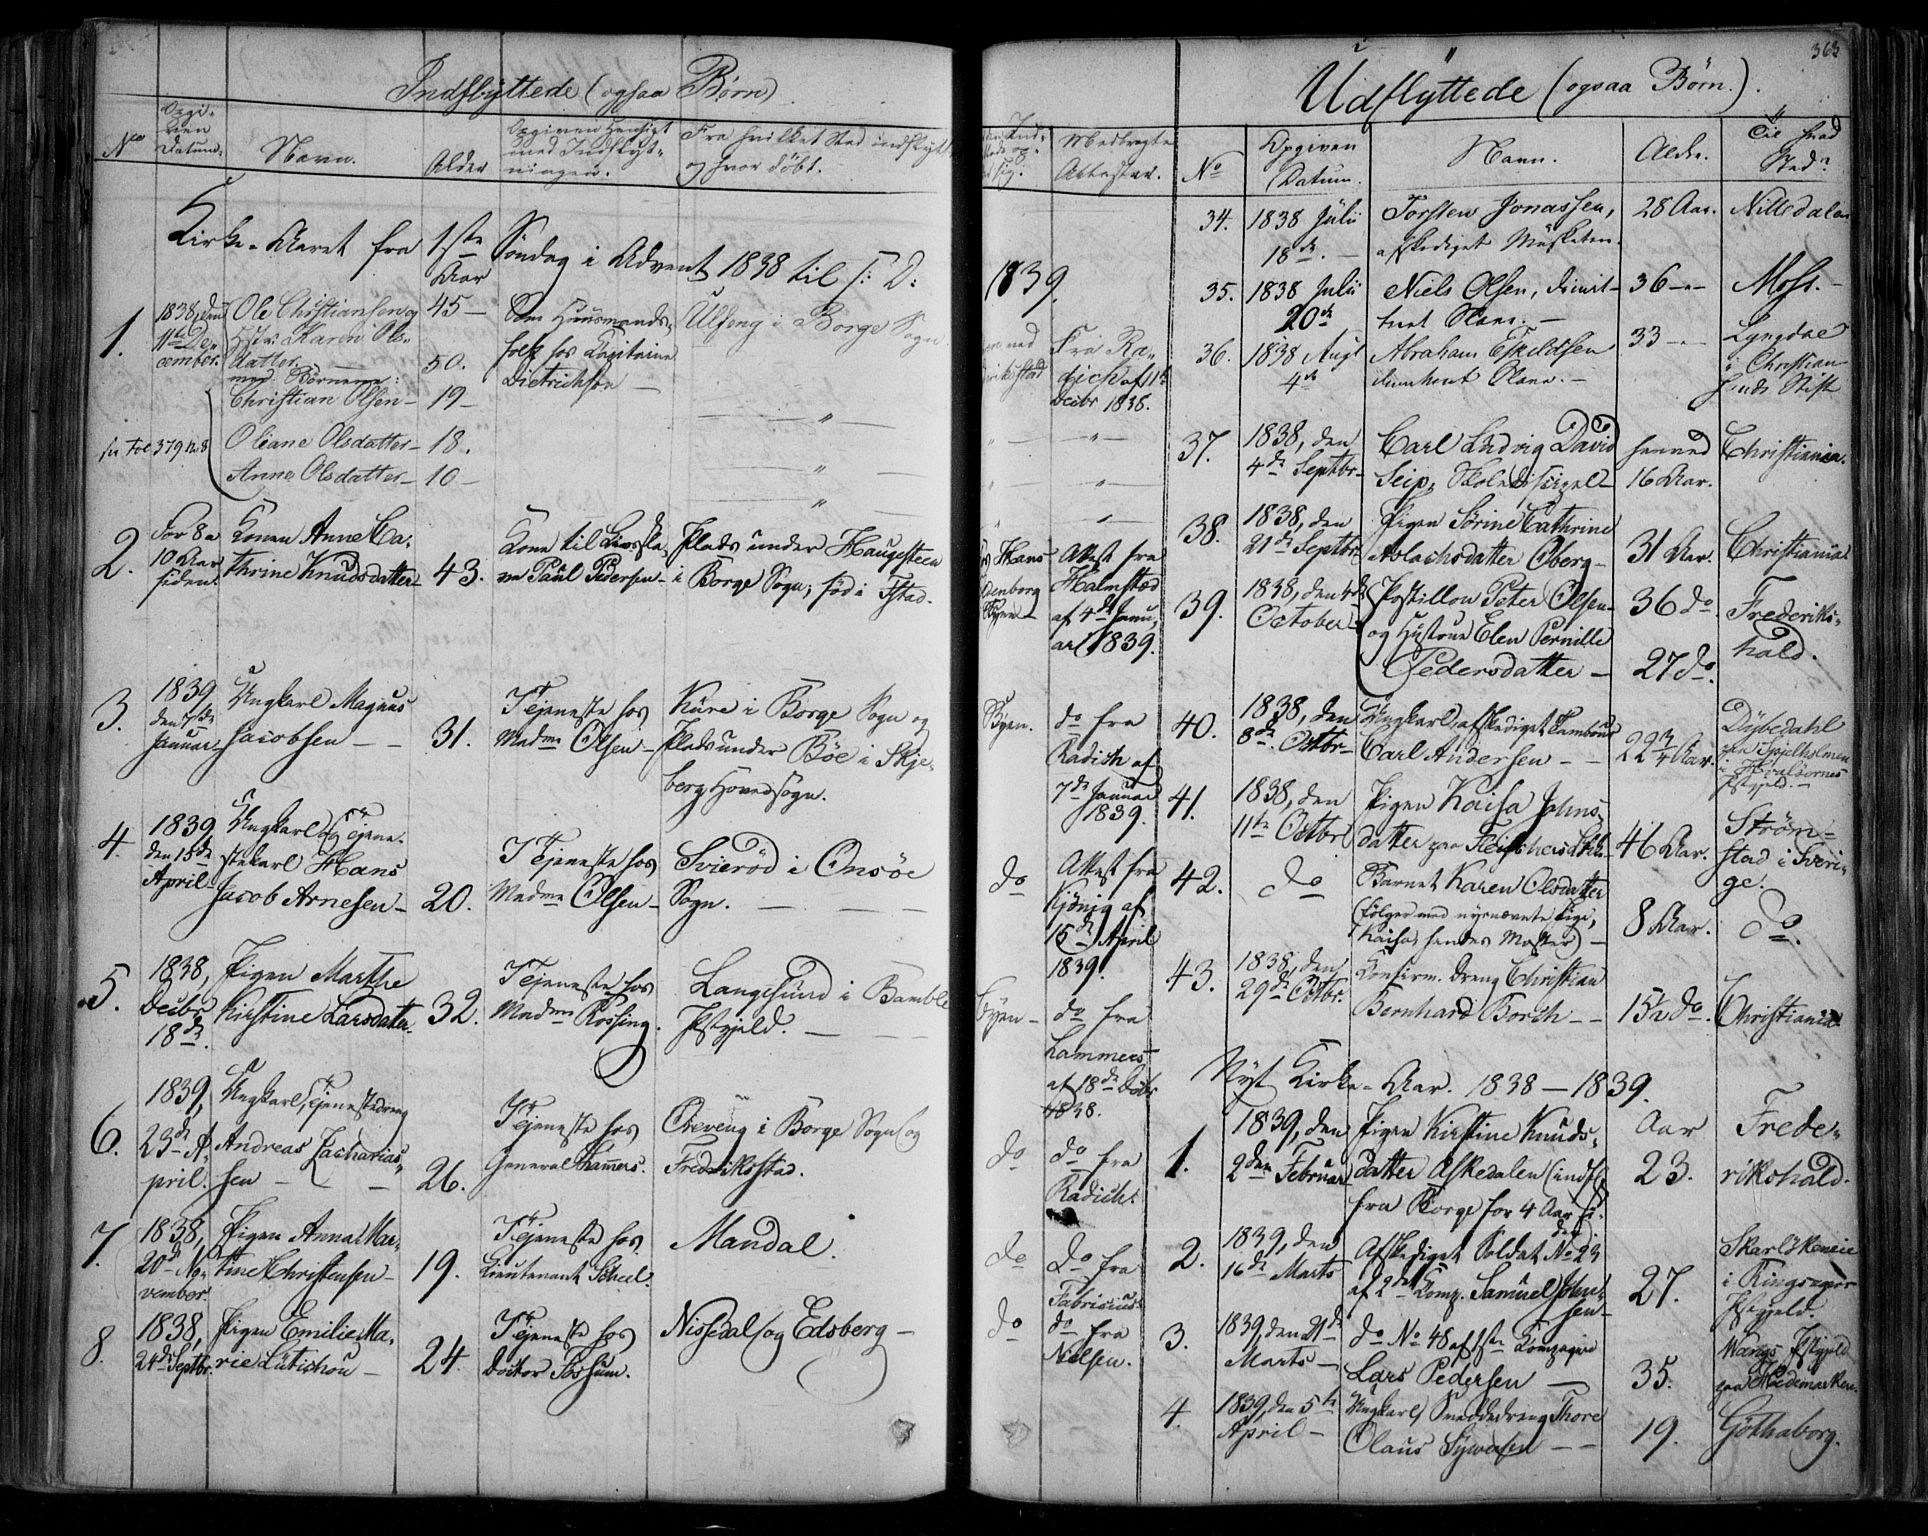 Indflyttede (ogsaa Børn)
No
Opgi-
ven
Datum.
Navn.
Alder
Opgiven Hensigt
med Indflyt-
ningen.
Fra hvilket Sted indflyttet
og hvor døbt.
Kirke-Aaret fra 1ste Søndag i Advent 1838 til s: D: 1839.
Aar
1.
1838, den
11te De-
cember.
Ole Christiansen og
Hstr: Karen Ols-
datter
med Børnene:
Christian Olsen
Oliane Olsdatter
Anne Olsdatter
45
50.
19
18.
10
Som Huusmands-
folk hos Capitaine
Dietrichson
i Borge Sogn
Fra Ra-
dich af 11te
Decbr 1838.
2.
For 8 a
10 Aar
siden.
Konen Anne Ca-
thrine Knudsdatter
43.
Kone til
Paul Pedersen
Plads under Haugesteen
i Borge Sogn; fød i Fstad.
Attest fra
Halmstad
af 4de Janu-
ar 1839.
3.
1839
den 7de
Januar
Ungkarl Magnus
Jacobsen
31.
Tjeneste hos
Madme Olsen
Kure i Borge Sogn og
Plads under Bøe i Skje-
berg Hovedsogn.
Byen.
do fra
Radich af
7de Januar
1839.
4.
1839
den 15de
April
Ungkarl og Tjene-
stekarl Hans
Jacob Arnesen
20.
Tjeneste hos
Madme Olsen
Svierød i Onsøe
Sogn.
do
Attest fra
af
15de April
1839.
5.
1838,
Decbr
18de.
Pigen Marthe
Kirstine Larsdatter.
32.
Tjeneste hos
Madme Rossing.
Langesund i Bamble
Pstgjeld.
Byen
do fra
Lammers
af 18de Decbr
1838.
6.
1839,
23de A-
pril.
Ungkarl, Tjenestedreng
Andreas Zacharias-
sen
26.
Tjeneste hos
General
i Borge Sogn og
Fredriksstad.
do
do fra
Radich.
7.
1838,
20de No-
vember.
Pigen Anna Mar-
tine Christensen
19.
Tjeneste hos
Lieutenant Scheel.
Mandal.
do
do fra
Fabricius
8.
1838,
24de Septbr.
Pigen Emilie Ma-
rie Lütichou
24.
Tjeneste hos
Doktor Fossum.
Nissedal og Edsberg
do
do fra
Nielsen.
363
Udflyttede (ogsaa Børn.).
Medbragte
Attester.
No
Opgiven
Datum.
Navn.
Alder.
Til hvad
Sted?
34.
1838 Julii
18de.
Torsten Jonassen,
afskediget Musketeer.
28 Aar.
Nittedalen
35.
1838 Julii
20de
Niels Olsen, dimit-
teret Slave.
36
Moss.
36.
1838 Augt
4de
Abraham Eskildsen
dimitteret Slave.
33
Lyngdal
i Christian-
sands Stift
37.
1838, den
4de Septbr
Carl Ludvig David
Seip, Skoledisipel
henved
16 Aar.
Christiania.
38.
1838, den
21de Septbr
Pigen Sørine Cathrine
Aslachsdatter Oberg
31 Aar.
Christiania
39.
1838, den 4de
October
Postillon Peter Olsen
og Hustrue Elen Pernille
Pedersdatter
36 do
27 do.
Frederiks-
hald.
40.
1838, den
8de. Octbr
Ungkarl, afskediget Tambour
Carl Andersen
22 3/4 Aar.
Dybedahl
i Hvaløernes
Pstgjeld.
41.
1838, den
11te Octbr
Pigen Kaisa Johns-
datter paa
46 Aar.
Strøm-
stad i Sveri-
ge.
42.
do
Barnet Karen Olsdatter
(følger med nysnævnte Pige,
Kaisa, hendes Moster)
8 Aar.
do.
43.
1838, den
29de Octbr.
Confirm. Dreng Christian
Bernhard Borch
15 1/2 do.
Christiania
Nyt Kirke-Aar. 1838 — 1839.
1.
1839, den
2den Februar
Pigen Kirstine Knuds-
datter Askedalen (indfl.
fra Borge for 4 Aar si-
den)
Aar
23.
Frede-
rikshald.
2.
1839, den
16de Marts
Afskediget Soldat No 23
af 2det Komp. Samuel John-
sen
27.
i Ringsager
Pstgjeld.
3.
1839, den 21de
Marts
do No 48 af 1ste Kompagnie
Lars Pedersen
35.
Wangs Pstgjeld
paa Hedemarken.
4.
1839, den 5te
April
Ungkarl, Smeddedreng Thore
Olaus Sywersen
19.
Göthaborg.